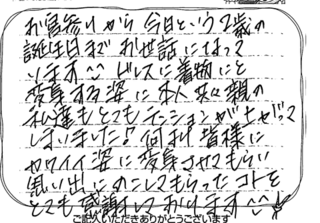 お宮参りから 今日という2歳の
誕生日まで お世話になって
います^^ ドレスに着物にと
変身する姿に本人 共々親の
私達もとてもテンションが上がって
しまいました！何より 皆様に
カワイイ姿に変身させてもらい
思い出にのこしてもらったコトを
とても感謝しております^^
ご記入いただきありがとうございます